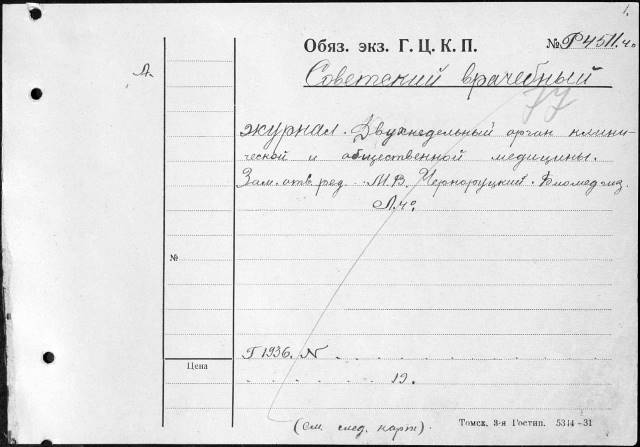 1.
Обяз. экз. Г. Ц. К. П. № Р4511.4°
А.
Советский врачебный
77
журнал. Двухнедельный орган клини-
ческой и общественной медицины.
Зам. отв. ред. М. В. Черноруцкий. Биомедгиз.
Л. 4°.
№
Г 1936. N . . . . .
Цена
. . . . . 19. . . . .
(См. след. карт).
Томск, 3-я Гостип. 5344—31